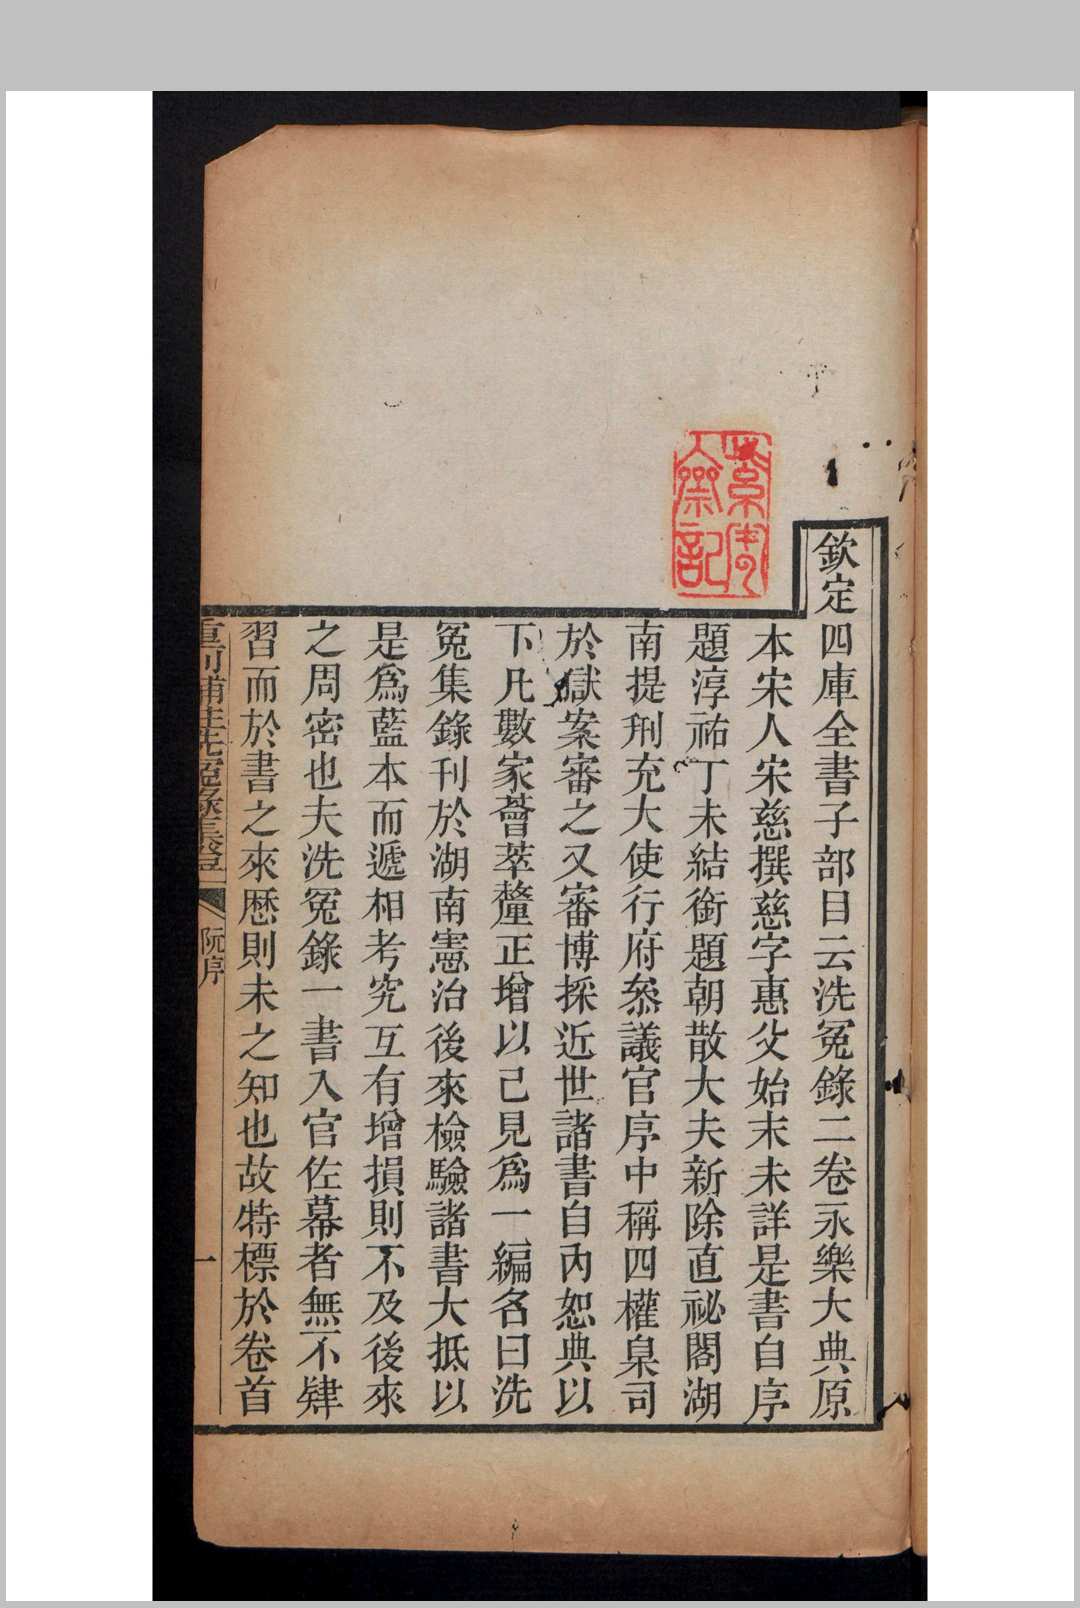 欽定四庫全書子部目云洗冤錄二卷永樂大典原
本宋人宋慈撰慈字惠父始末未詳是書自序
題淳祐丁未結銜題朝散大夫新除直祕閣湖
南提刑充大使行府叅議官序中稱四權臬司
於獄案審之又審博採近世諸書自內恕典以
下凡數家薈萃釐正增以己見爲一編名曰洗
冤集錄刊於湖南憲治後來檢驗諸書大抵以
是爲藍本而遞相考究互有增損則不及後來
之周密也夫洗冤錄一書入官佐幕者無不肄
習而於書之來歷則未之知也故特標於卷首
重刊補註洗冤錄集證
阮序
一